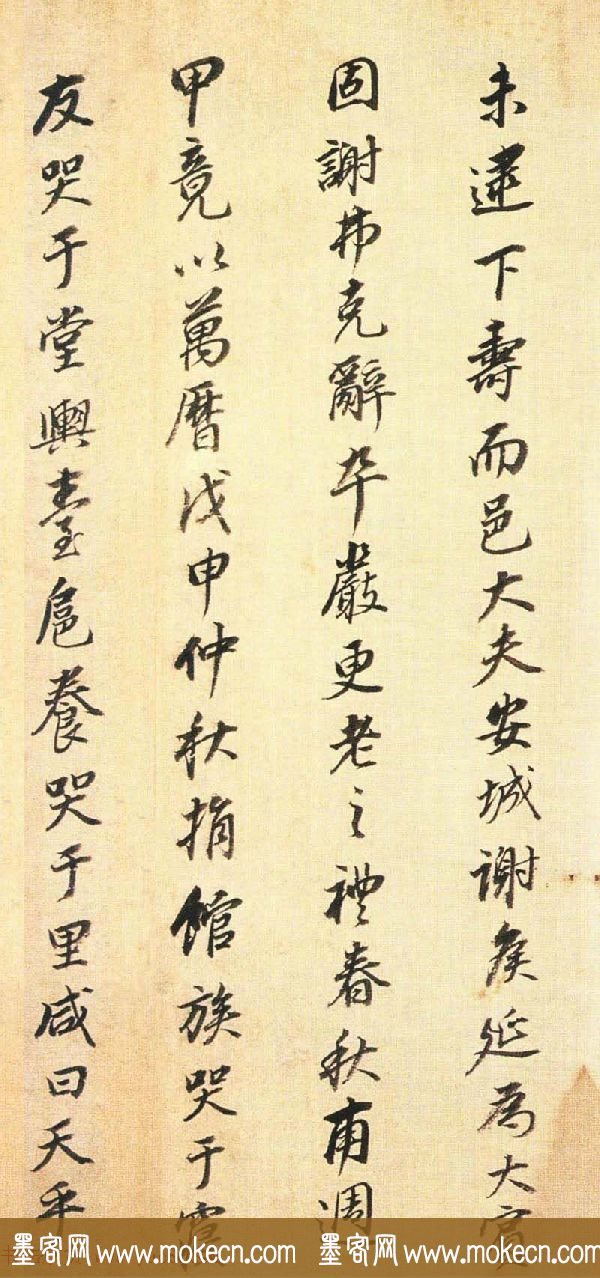 未逮下壽而邑大夫安城謝矦延為大賓
固謝弗克辭卒嚴更老之禮春秋甫週
甲竟以萬曆戊申仲秋捐館族哭于寢
友哭于堂輿臺扈養哭于里咸曰天乎
墨客网 www.mokecn.com 墨客网 www.mokecn.com